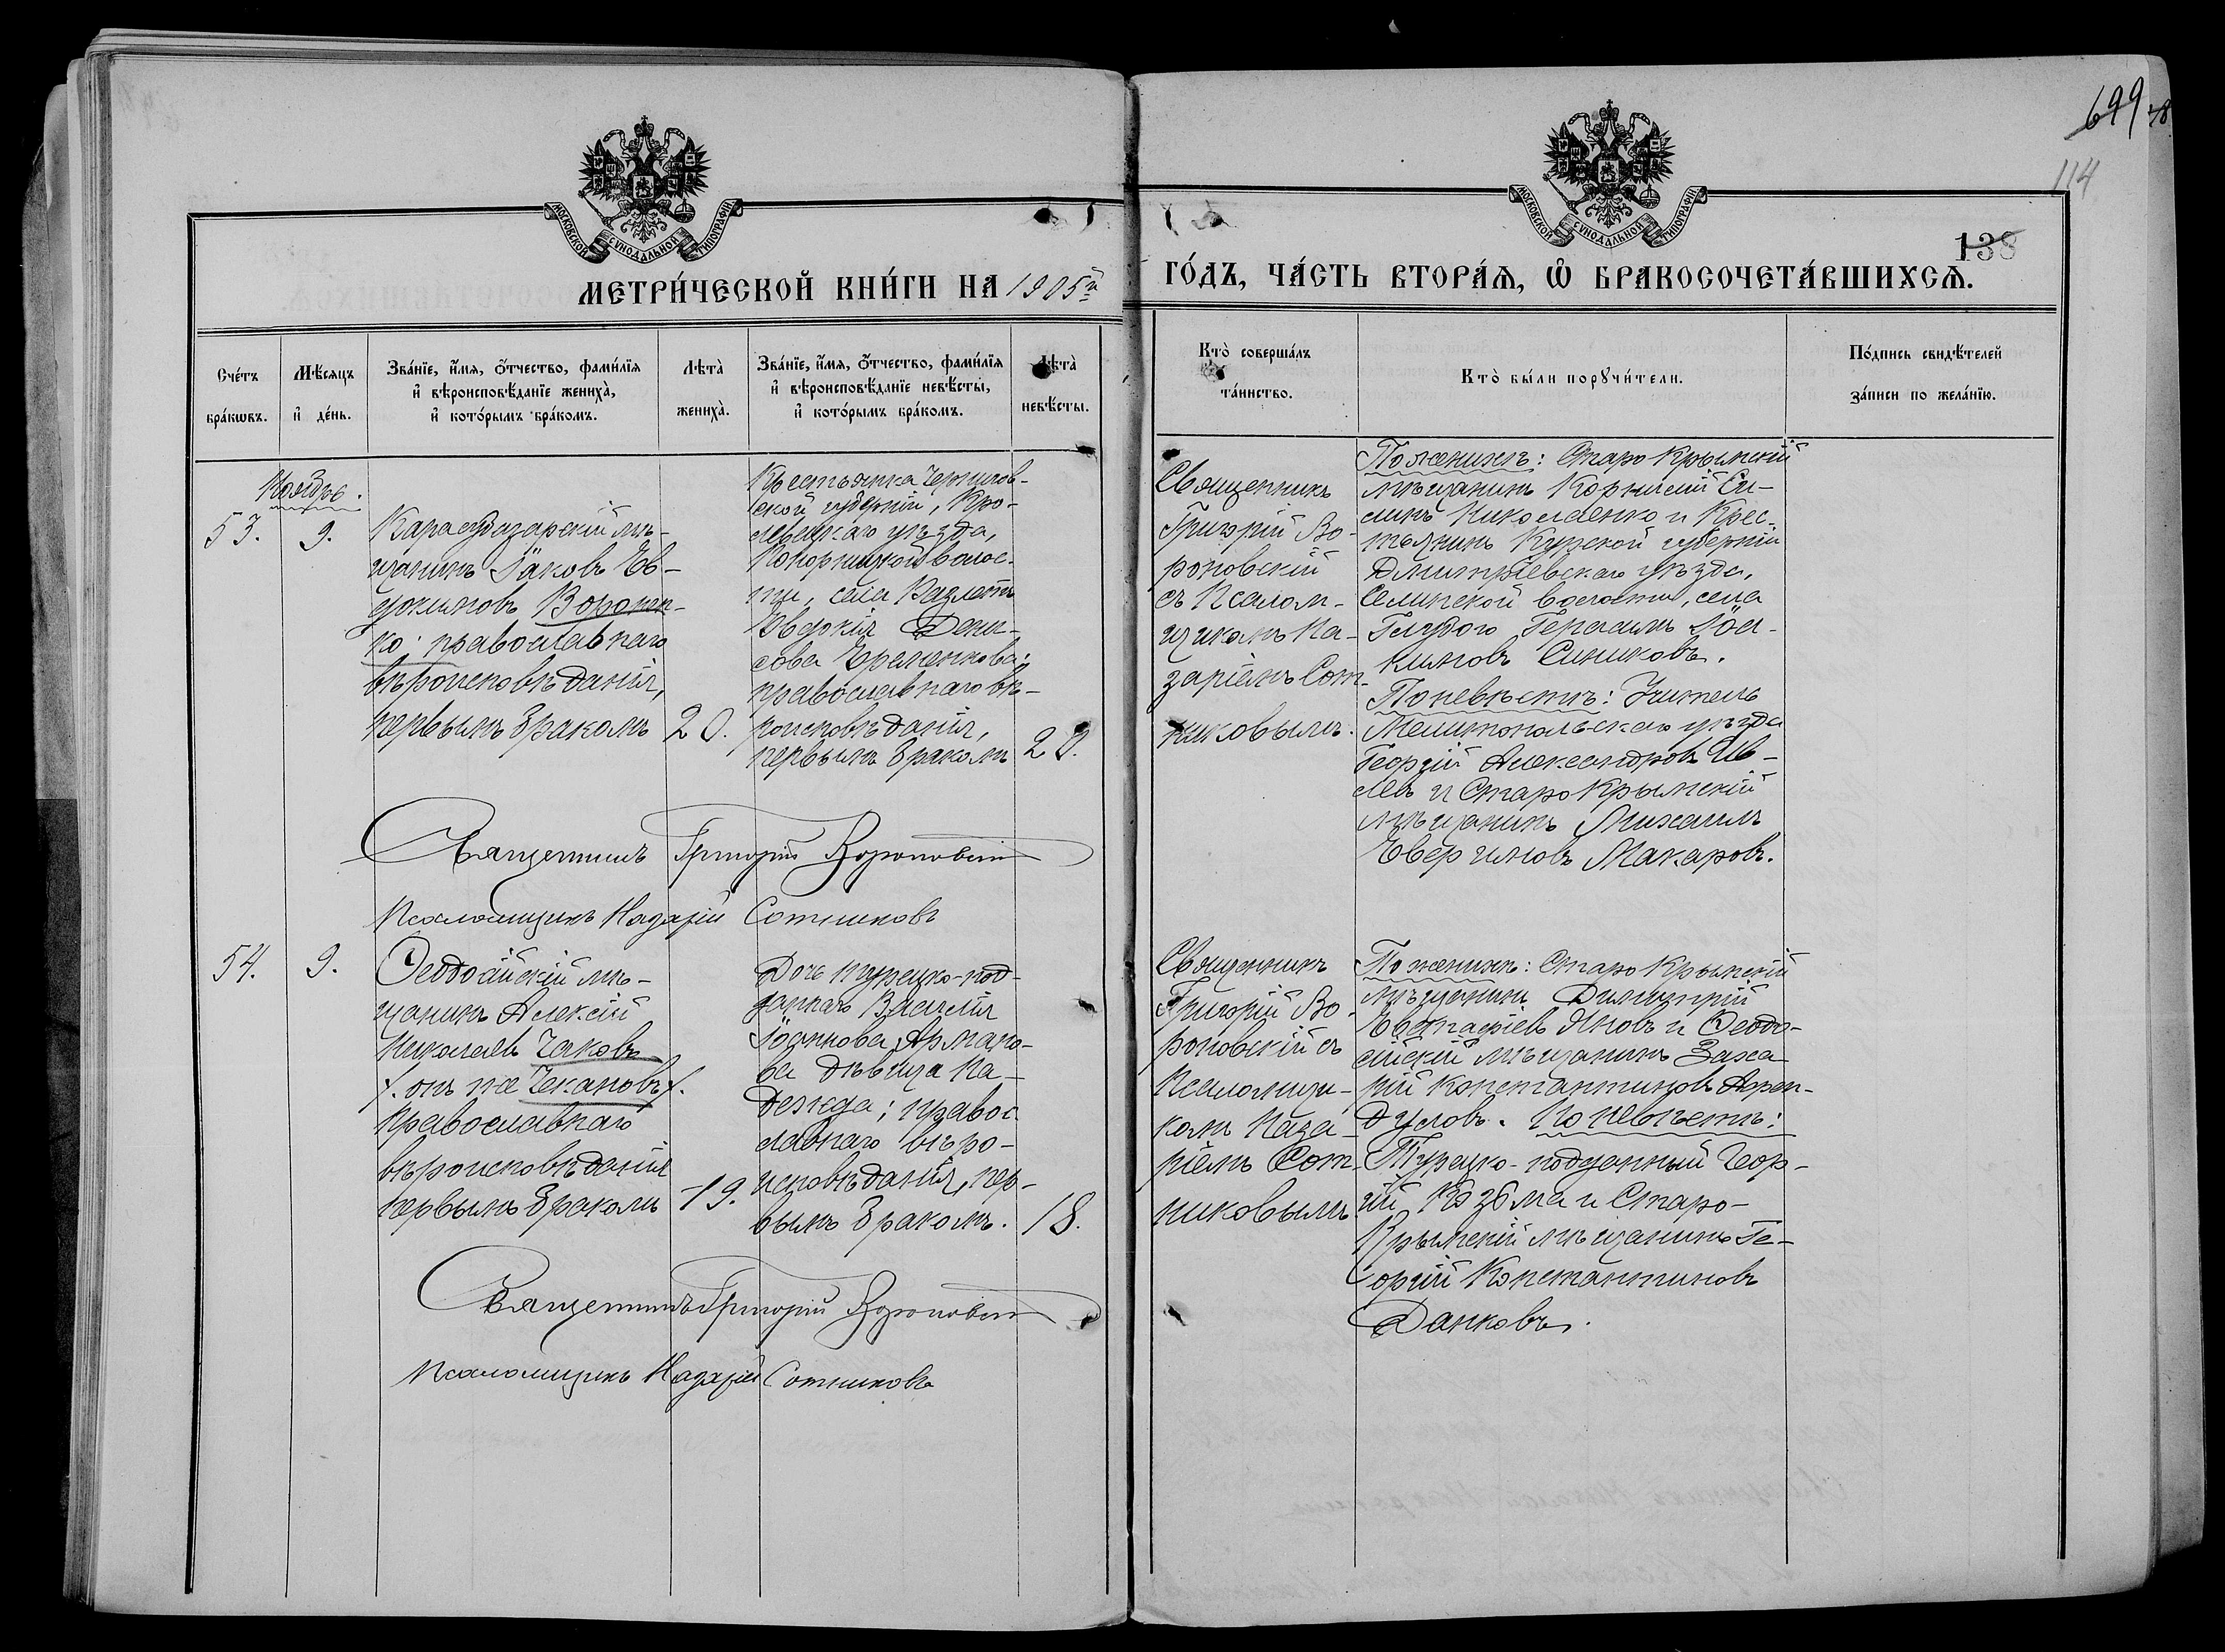 699
114
138
МОСКОВСКОЙ СѴНОДАЛЬНОЙ ТИПОГРАФІИ
МОСКОВСКОЙ СѴНОДАЛЬНОЙ ТИПОГРАФІИ
МЕТРИ́ЧЕСКОЙ КНИ́ГИ НА 1905й
ГО́ДЪ, ЧА́СТЬ ВТОРА́Ѧ, Ѡ҆ БРАКОСОЧЕТА́ВШИХСѦ.
Сче́тъ
бра́кѡвъ.
Мѣ́сяцъ
и҆ де́нь.
Зва́нїе, и҆́мя, ѻ҆́тчество, фами́лїя
и҆ вѣроисповѣ́данїе жениха̀,
и҆ кото́рымъ бра́комъ.
Лѣта̀
жениха̀.
Зва́нїе, и҆́мя, ѻ҆́тчество, фами́лїя
и҆ вѣроисповѣ́данїе невѣ́сты,
и҆ кото́рымъ бра́комъ.
Лѣта̀
невѣ́сты.
Кто̀ соверша́лъ
та́инство.
Кто̀ бы́ли порꙋчи́тели.
По́дпись свидѣ́телей
за́писи по жела́нїю.
Ноябрь.
53.
9.
Карасубазарскій мѣ-
щанинъ Іаковъ Ев-
фимовъ Воронен-
ко; православнаго
вѣроисповѣданія,
первымъ бракомъ
20.
Крестьянка Чернигов-
ской губерніи, Кро-
левецкаго уѣзда,
Понорницкой волос-
ти, села
Евдокія Дени-
сова Еременкова;
православнаго вѣ-
роисповѣданія,
первымъ бракомъ
22.
Священникъ
Григорій Во-
роновскій
съ Псалом-
щикомъ На-
заріемъ Сот-
никовымъ.
По женихѣ: Старо Крымскій
мѣщанинъ Корнилій Ем-
Николаенко и Крес-
тьянинъ Курской губерніи
Дмитріевскаго уѣзда,
Селинской волости, села
Голубого Герасимъ Іоа-
кимовъ Синиковъ.
По невѣстѣ: Учитель
Мелитопольскаго уѣзда
Георгій Александровъ Ив-
левъ и Старо Крымскій
мѣщанинъ Михаилъ
Макаровъ.
Священникъ Григорій Вороновскій
Псаломщикъ Назарій Сотниковъ
54.
9.
Ѳеодосійскій мѣ-
щанинъ Алексій
Николаевъ Чаковъ
/. онъ же Чекановъ /.
православнаго
вѣроисповѣданія
первымъ бракомъ
19.
Дочь турецко-под-
даннаго Василія
Іоаннова Армано-
ва дѣвица На-
дежда; правос-
лавнаго вѣро-
исповѣданія, пер-
вымъ бракомъ.
18.
Священникъ
Григорій Во-
роновскій съ
Псаломщи-
комъ Наза-
ріемъ Сот-
никовымъ
По женихѣ: Старо Крымскій
мѣщанинъ Димитрій
Евстафіевъ Яновъ и Ѳеодо-
сійскій мѣщанинъ Заха-
рій Константиновъ
По невѣстѣ:
Турецко-подданный Геор-
гій Козьма и Старо-
Крымскій мѣщанинъ Ге-
оргій Константиновъ
Данковъ.
Священникъ Григорій Вороновскій
Псаломщикъ Назарій Сотниковъ